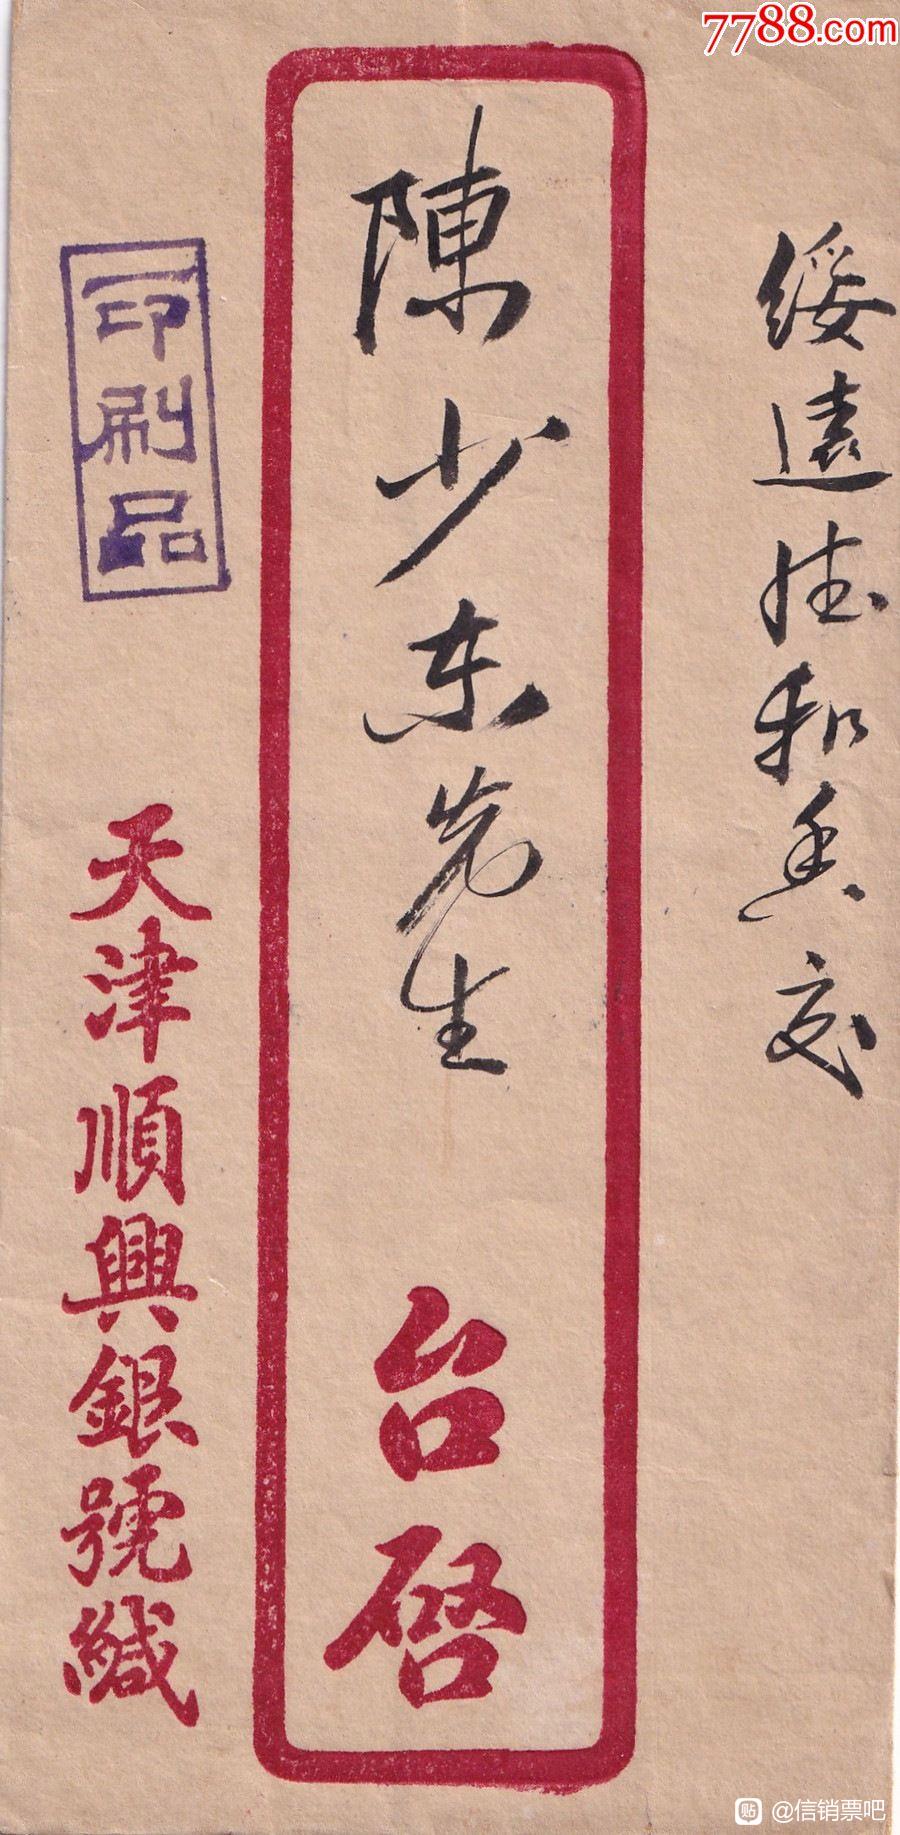 7788.com
綏遠德和興交
陳少東先生
台啓
印刷品
天津順興銀號緘
@信销票吧